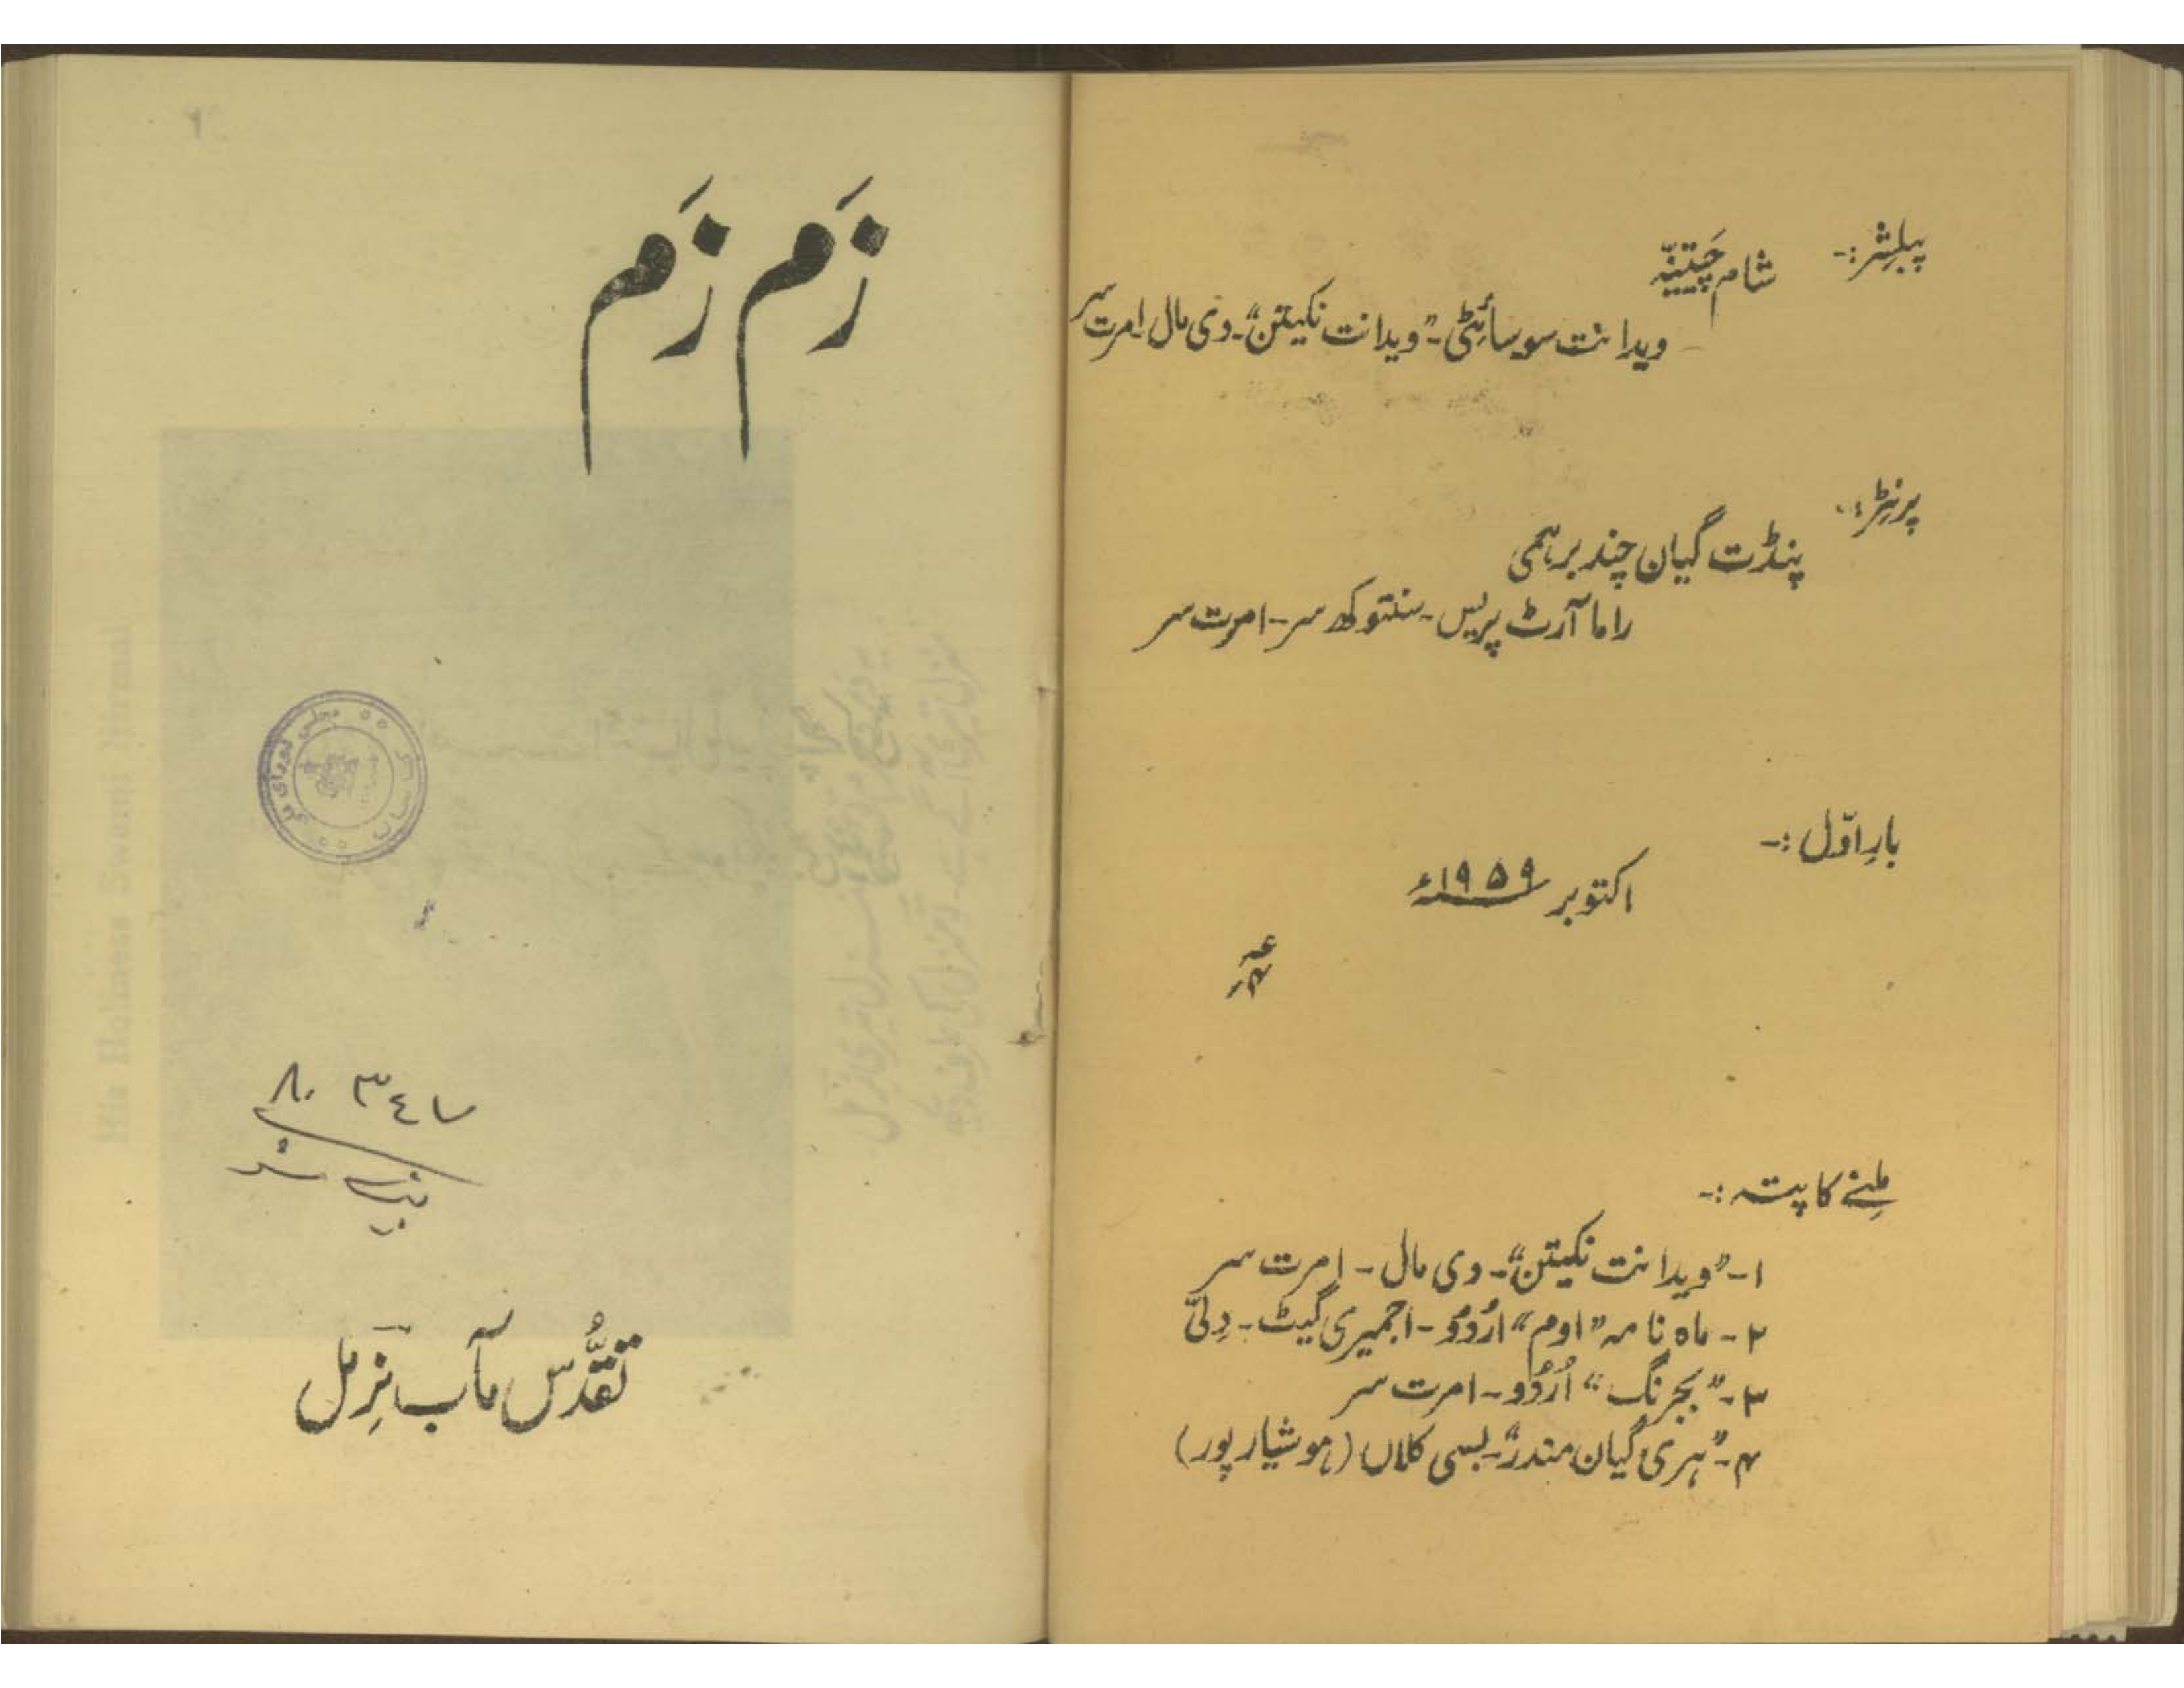 پبلشر:-
شام چَیتنیّہ
ویدانت سوسائٹی-"ویدانت نکیتن"-دی مال امرت سر
پرنٹر:-
پنڈت گیان چند برہمی
راما آرٹ پریس-سنتوکھ سر-امرت سر
بارِ اوّل:-
اکتوبر ۱۹۵۹ء
مِلنے کا پتہ:-
۱-"ویدانت نکیتن"-دی مال-امرت سر
۲-ماہ نامہ "اوم" اُردُو-اجمیری گیٹ-دِلّی
۳-"بجرنگ" اُردُو-امرت سر
۴-"ہری گیان مندر"-بسی کلاں (ہوشیارپور)
زَم زَم
تقدُّس مآب نِرمل
His Holiness Swami Nirmal